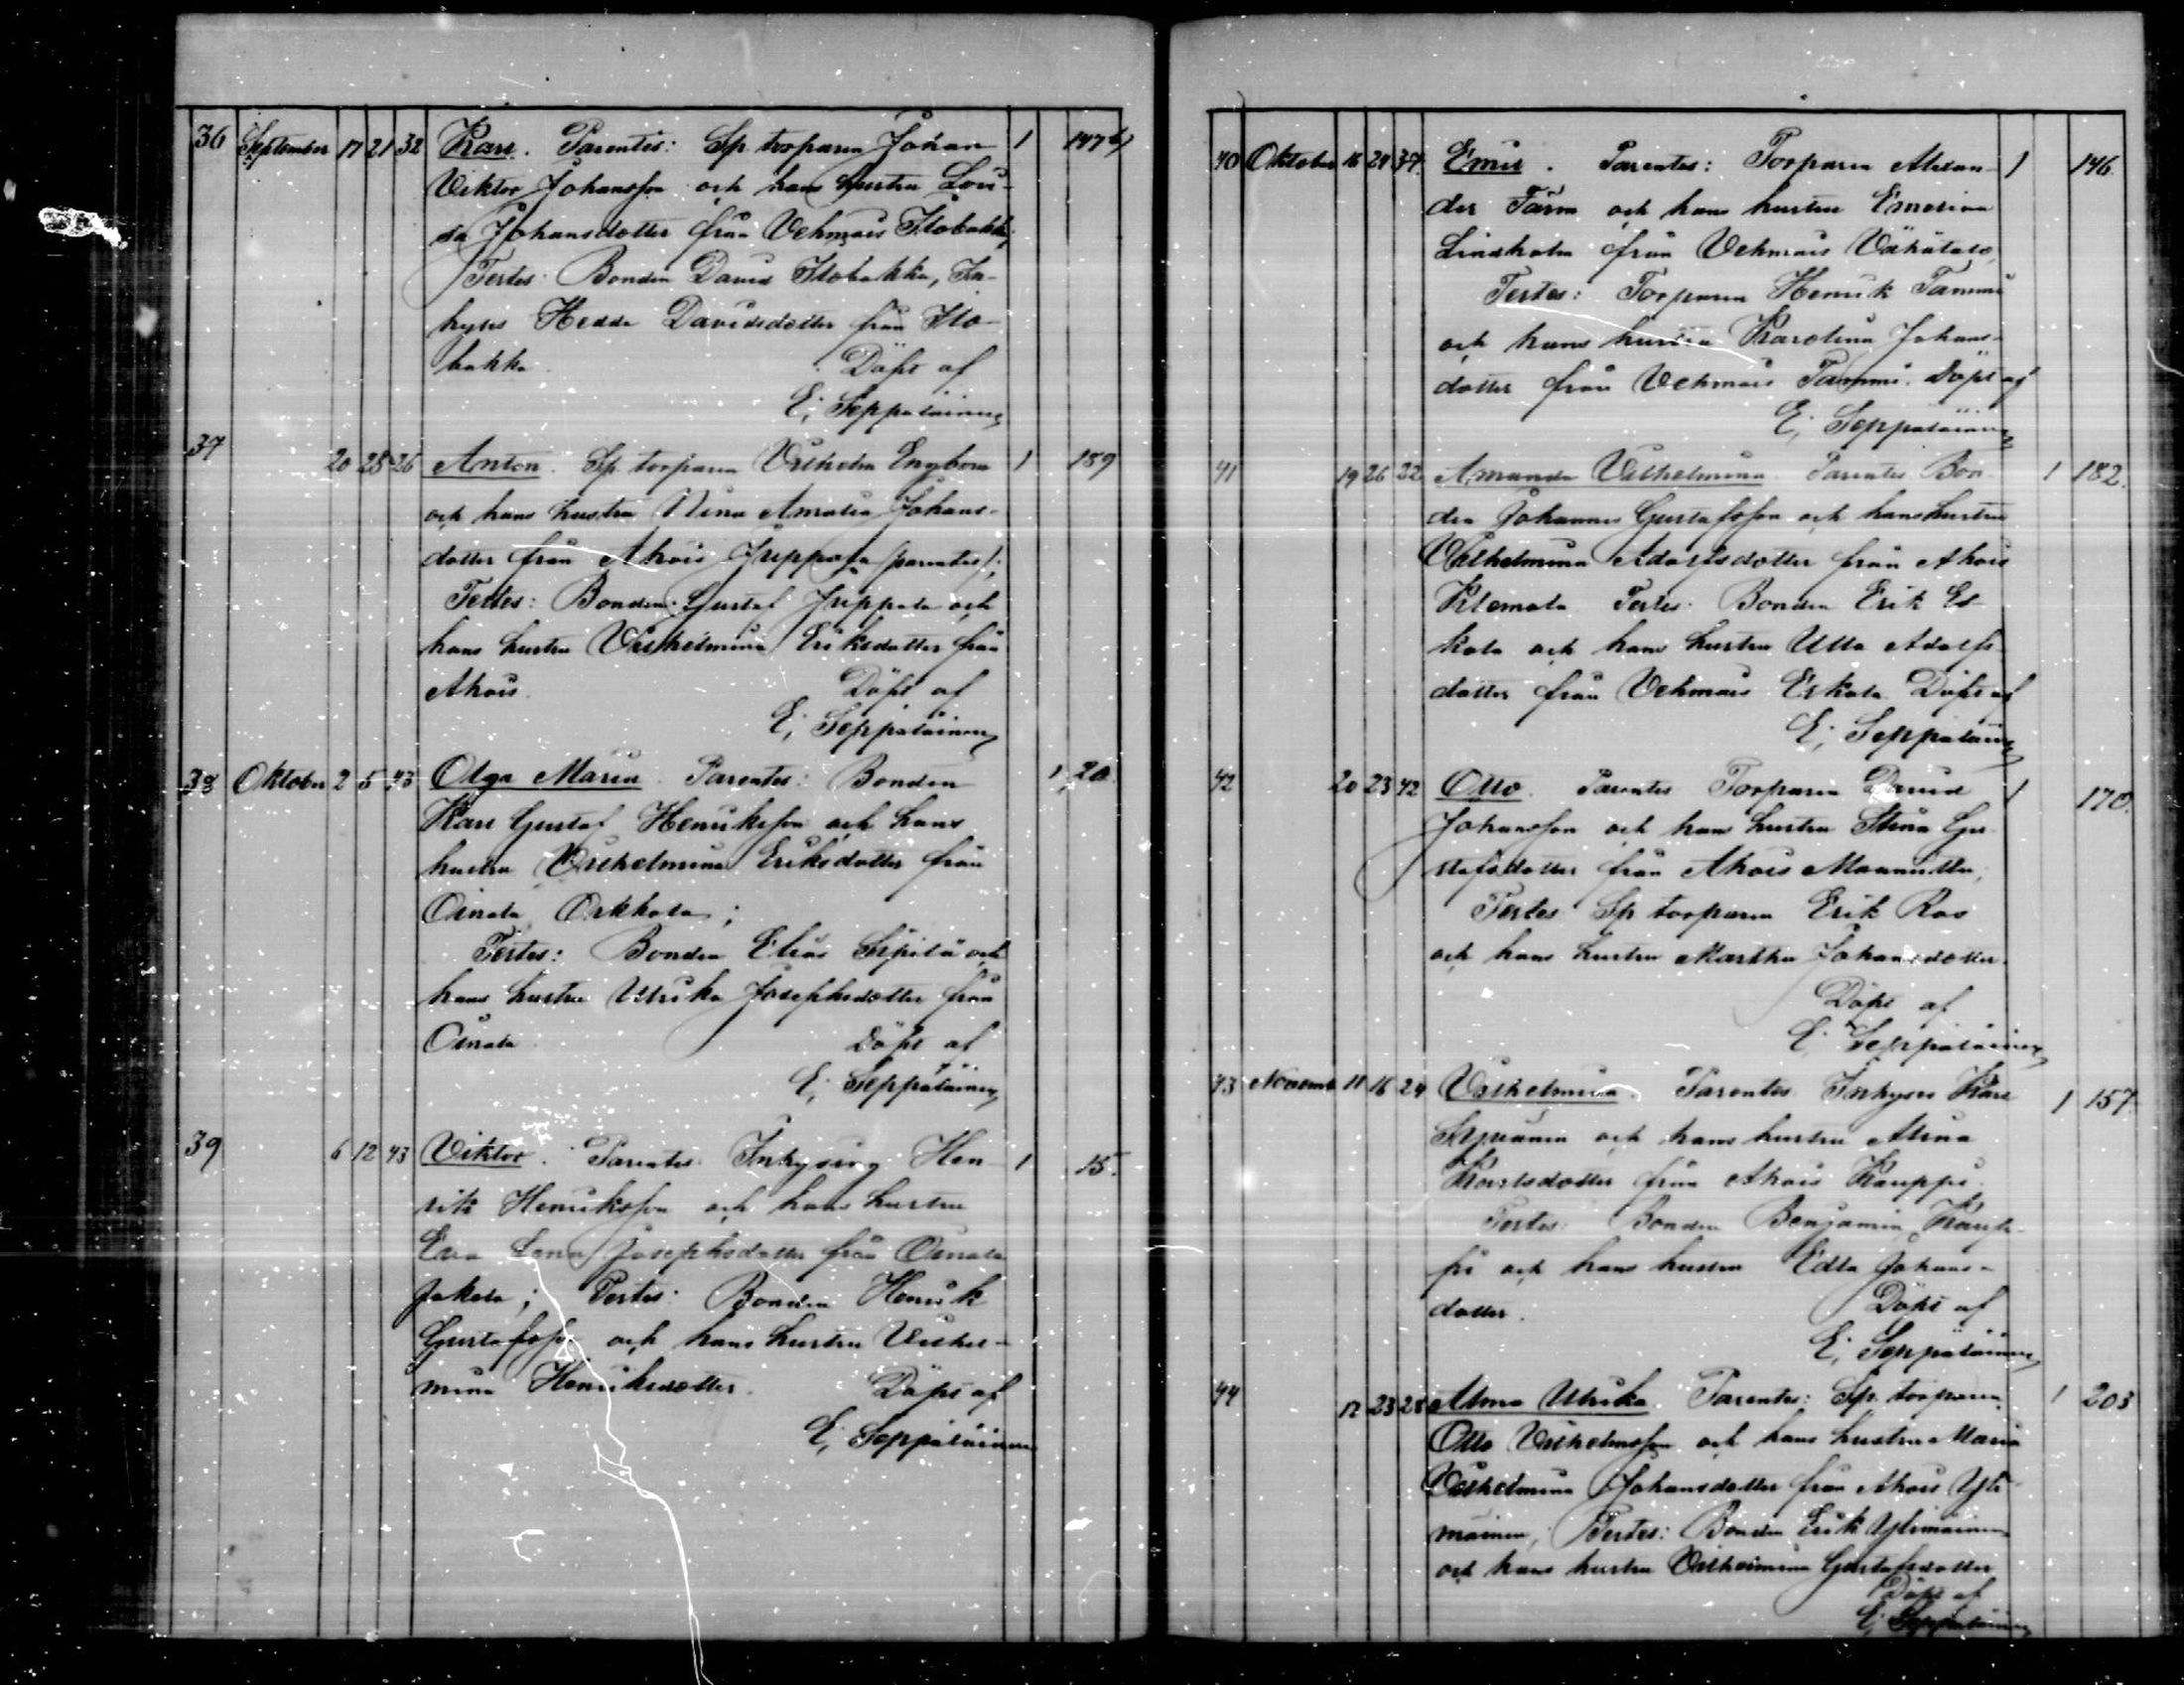 36 September 17 21 32 Karl. Parentes: Sp. torparen Johan 1 147 b)
Viktor Johansson och hans hustru Lovi-
sa Johansdotter från Vehmais Isotakka;
Testes: Bonden David Isotakka, In-
hyses Hedda Davidsdotter från Iso-
takka. Döpt af
E. Seppäläinen
37 20 28 26 Anton. Sp. torparen Vilhelm Engblom 1 189
och hans hustru Nina Amalia Johans-
dotter från Ahois Juppala (parentes);
Testes: Bonden Gustaf Juppala och
hans hustru Vilhelmina Eriksdotter från
Ahois. Döpt af
E. Seppäläinen
38 Oktober 2 5 43 Olga Maria. Parentes: Bonden 1 20
Karl Gustaf Henriksson och hans
hustru Vilhelmina Eriksdotter från
Oinala Orkkola;
Testes: Bonden Elias Sipilä och
hans hustru Ulrika Josephsdotter från
Oinala. Döpt af
E. Seppäläinen
39 6 12 43 Viktor. Parentes: Inhysing Hen- 1 15.
rik Henriksson och hans hustru
Eva Lena Josephsdotter från Oinala
Jakola; Testes: Bonden Henrik
Gustafsson och hans hustru Vilhel-
mina Henriksdotter. Döpt af
E. Seppäläinen
40 Oktober 16 24 37 Emil. Parentes: Torparen Alexan- 1 146
der Färm och hans hustru Emerina
Lindholm från Vehmais Väkätalo,
Testes: Torparen Henrik Tammi
och hans hustru Karolina Johans-
dotter från Vehmais Tammi. Döpt af
E. Seppäläinen
41 19 26 22 Amanda Vilhelmina. Parentes Bon- 1 182.
den Johannes Gustafsson och hans hustru
Vilhelmina Adolfsdotter från Ahois
Klemola Testes: Bonden Erik Es-
kola och hans hustru Ulla Adolfs-
dotter från Vehmais Eskola. Döpt af
E. Seppäläinen
42 20 23 42 Otto. Parentes Torparen David 1 170.
Johansson och hans hustru Stina Gu-
stafsdotter från Ahois
Testes: Sp. torparen Erik Ras
och hans hustru Martha Johansdotter.
Döpt af
E. Seppäläinen
43 11 16 24 Vilhelmina. Parentes Inhyses Karl 1 157
och hans hustru Alina
Karlsdotter från Ahois Kauppi.
Testes: Bonden Benjamin Kaup-
pi och hans hustru Edla Johans-
dotter. Döpt af
E. Seppäläinen
44 17 23 28 Alma Ulrika. Parentes: Sp. torparen 1 203
Otto Vilhelmsson och hans hustru Maria
Vilhelmina Johansdotter från Ahois Yli-
mäinen; Testes: Bonden Erik Ylimäinen
och hans hustru Vilhelmina Gustafsdotter
Döpt af
E. Seppäläinen